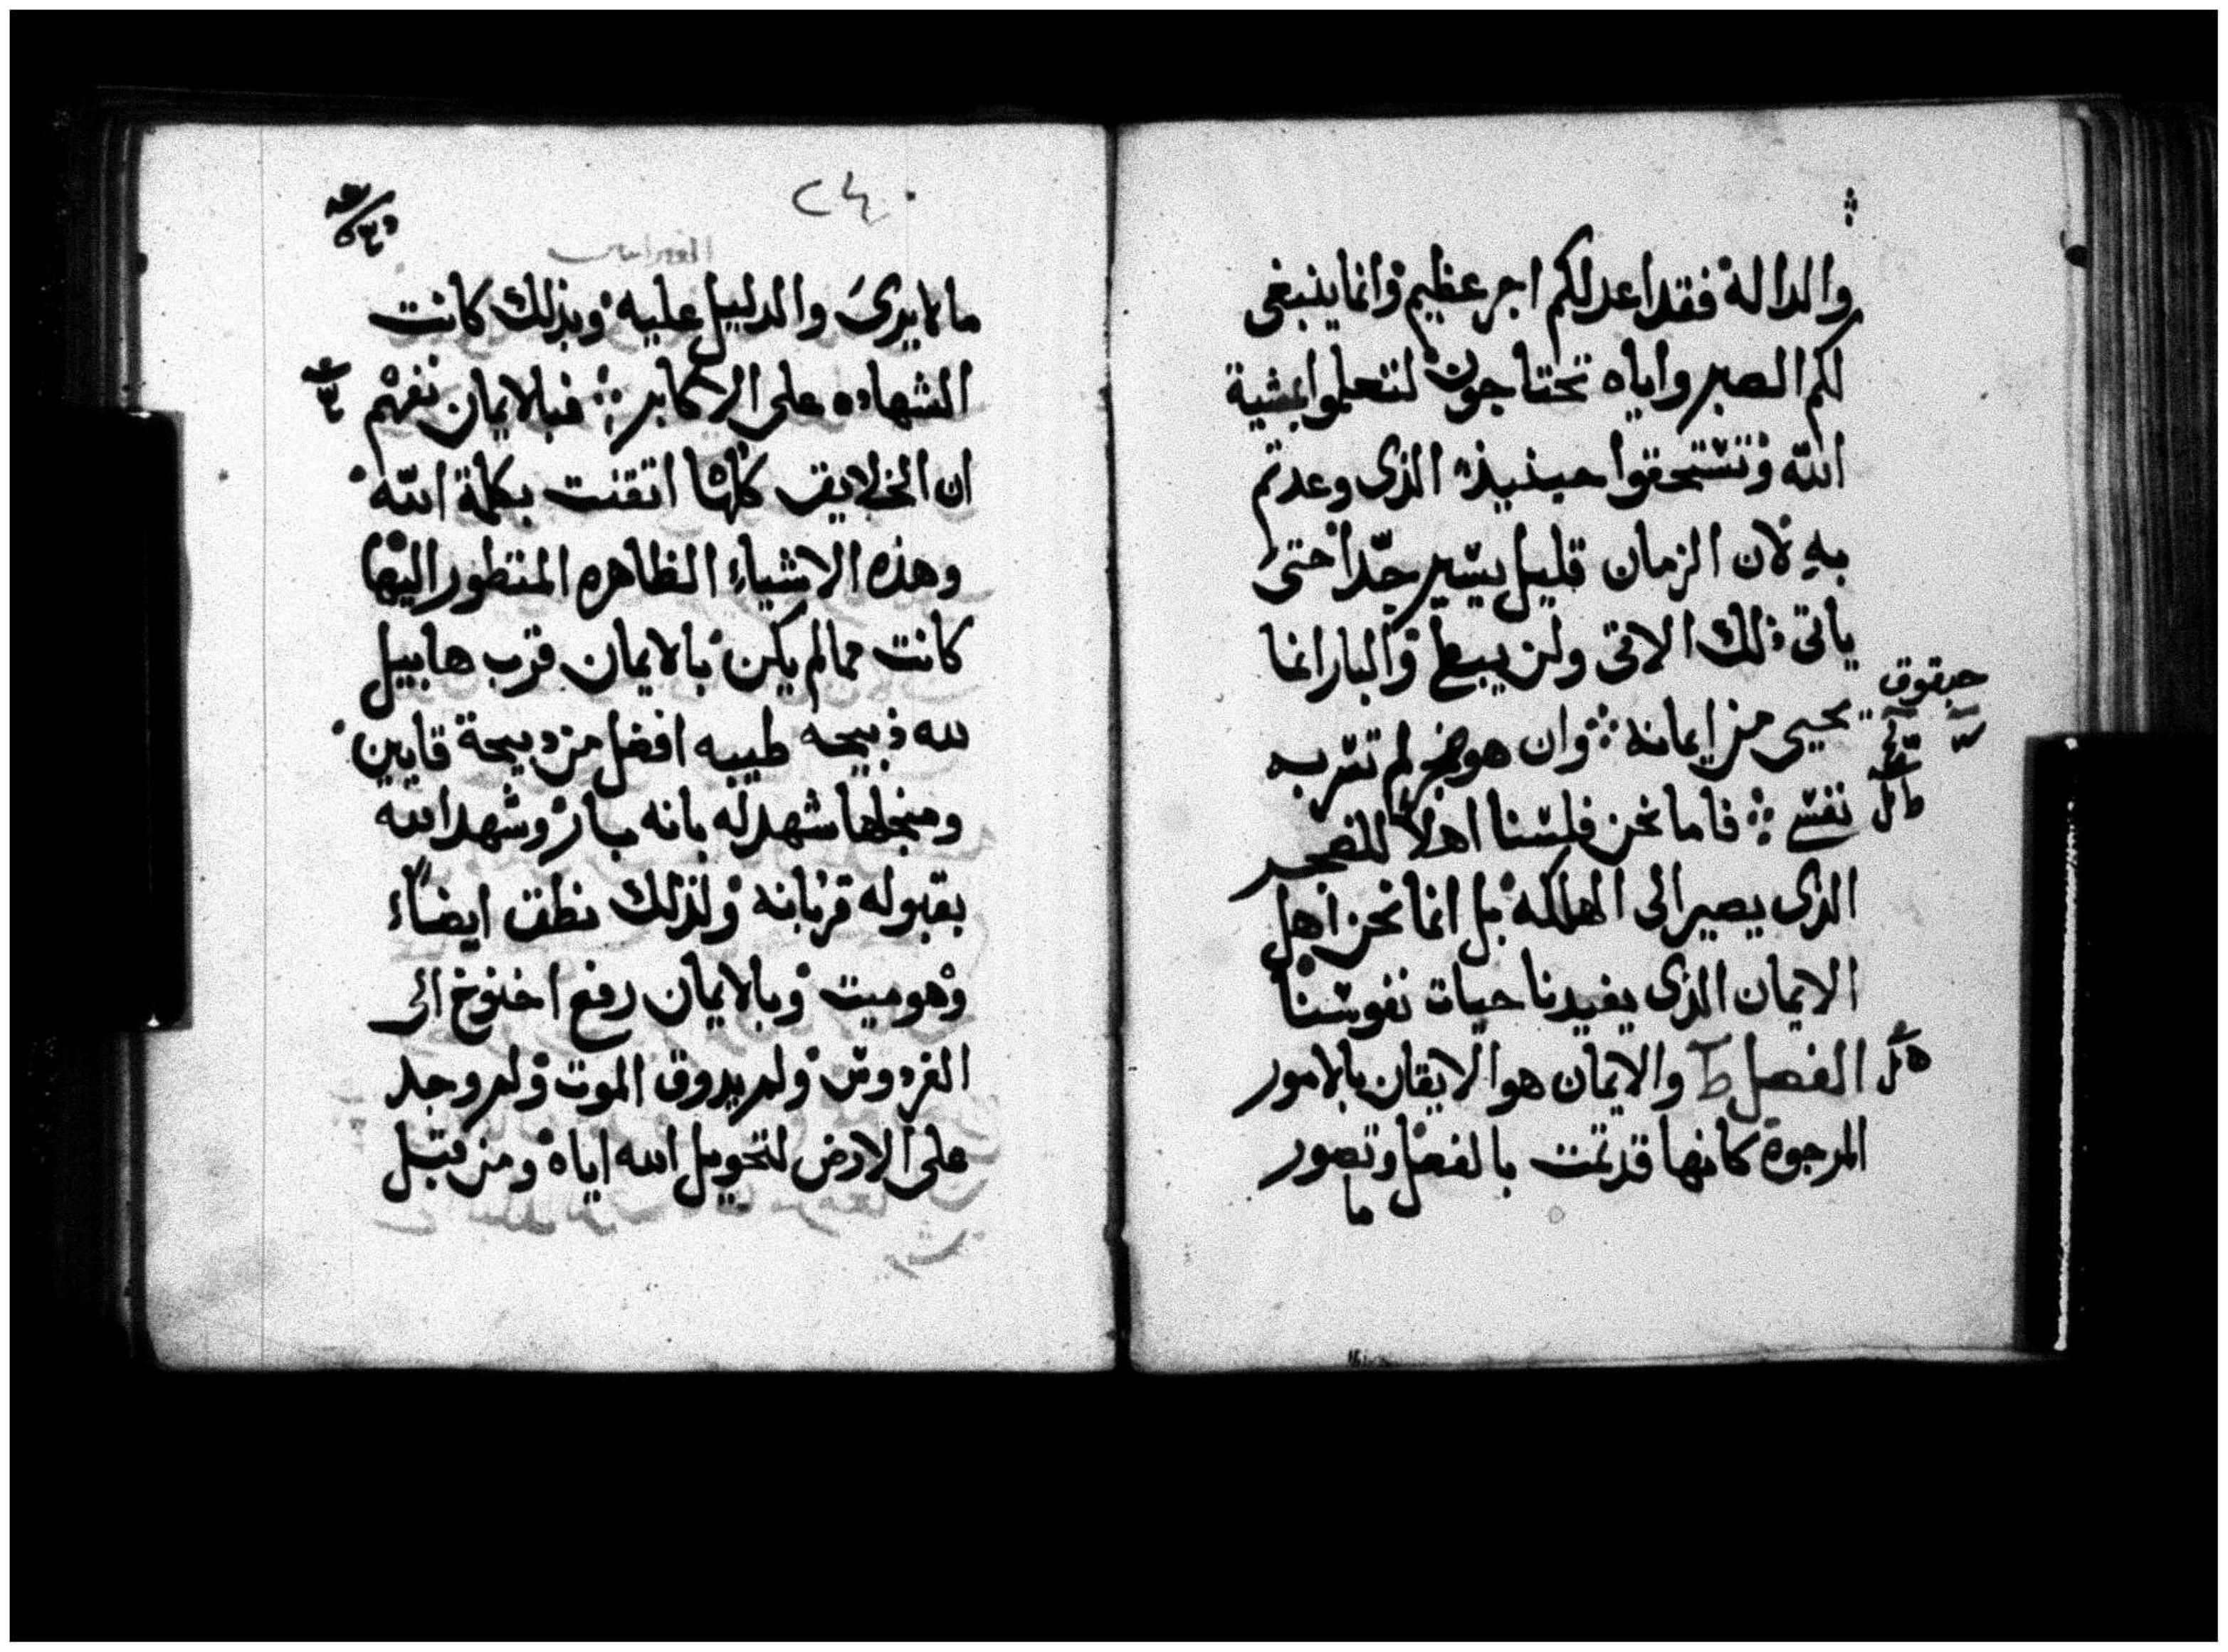 والدالة فقد اعد لكم اجر عظيم وانما ينبغى
لكم الصبر واياه تحتاجون لتتعلموا بمشية
الله وتستحقوا حينيذ الذى وعدتم
به لان الزمان قليل يسير جدا حتى
ياتى ذلك الاتى ولن يبطى والبار انما
حبقوق
يحيى من ايمانه وان هو ضجر لم تسر به
نفسى فاما نحن فلسنا اهلا للضجر
الذى يصير الى الهلكه بل انما نحن اهل
الايمان الذى يفيدنا حيات نفوسنا
الفصل ط والايمان هو الايقان بالامور
المرجوة كانها قد تمت بالفصل وتصور
ما
٢٤٠
العبرانيين
ما لا يرى والدليل عليه وبذلك كانت
الشهاده على الاكابر فبالايمان نفهم
ان الخلايق كلها اتقنت بكلمة الله
وهذه الاشياء الظاهره المنظور اليها
كانت مما لم يكن بالايمان قرب هابيل
لله ذبيحه طيبه افضل من دبيحة قايين
ومنجلها شهد له بانه بار وشهد الله
بقبوله قربانه ولذلك نطق ايضاً
وهو ميت وبالايمان رفع اخنوخ الى
الفردوس ولم يدوق الموت ولم روجد
على الارض لتحويل الله اياه ومن قبل